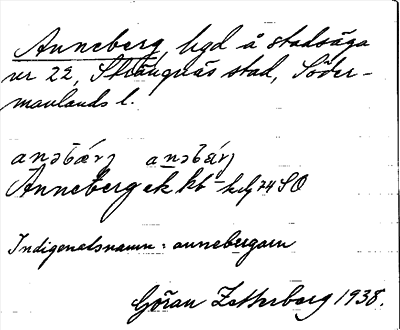 Anneberg, lgd å stadsäga
nr 22, Strängnäs stad, Söder-
manlands l.
Anneberg ek kb
Indigenatsnamn: annebergarn
Göran Zetterberg 1938.